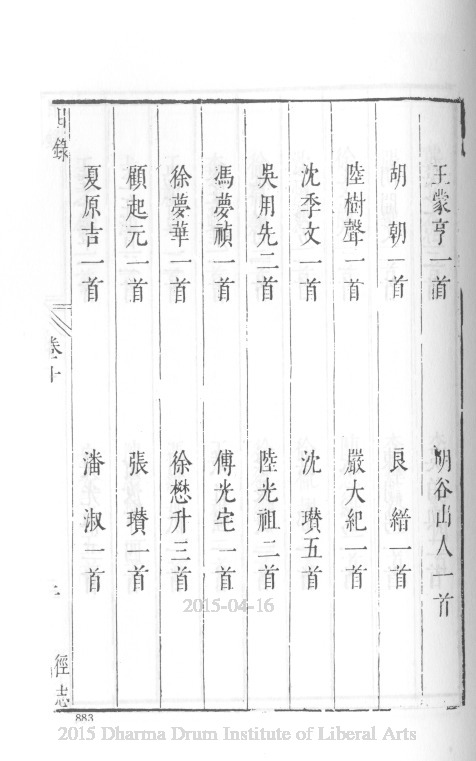 王蒙亨一首 明谷山人一首
胡朝一首 良縉一首
陸樹聲一首 嚴大紀一首
沈季文一首 沈瓚五首
吳用先二首 陸光祖二首
馮夢禎一首 傅光宅一首
徐夢華一首 徐懋升三首
顧起元一首 張瓚一首
夏原吉一首 潘淑一首
目錄
徑志
883
2015-04-16
2015 Dharma Drum Institute of Liberal Arts